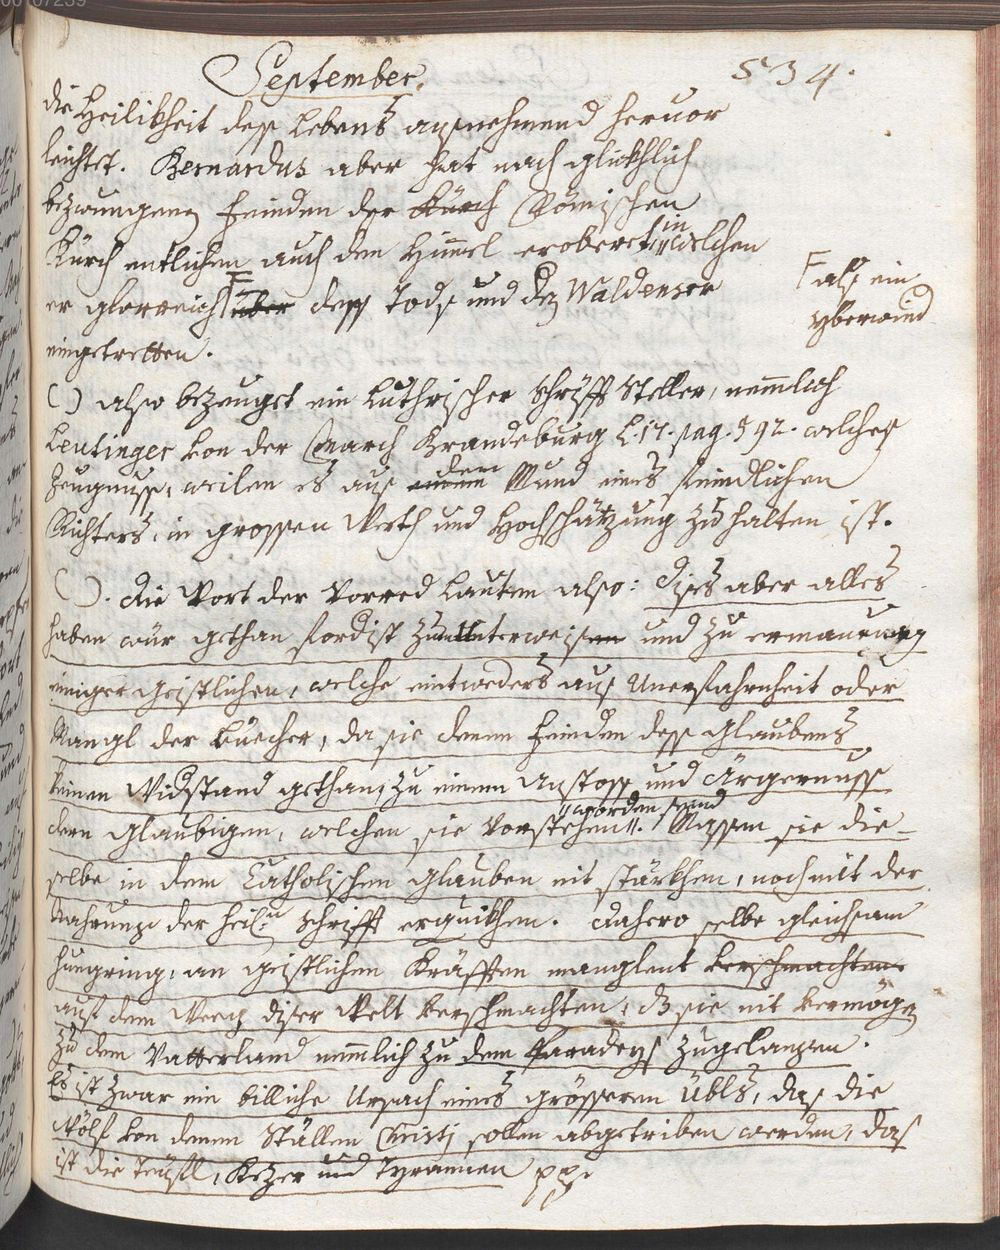 00107239
September.
534.
die Heilikheit deß Lebens ausnehmend hervor
leichtet. Bernardus aber hat nach glickhlich
bezwungenen Feinden der Kürch Römischen
Kürch entlichen auch den Himel erobert, in welchen
er glorreich F über deß Tods und der Waldenser
F alß ein
yberwind
eingetretten.
() also bezeuget ein Luthrischer Schrifft Steller, nemmlich
Leutinger von der March Brandeburg L. 17. pag. 592. welches
Zeugnuss, weilen es auß einem dem Mund eines feindlichen
Richters, in grossen Werth und Hochschätzung zu halten ist.
(). die Wort der Vorred Lauten also: dises aber alles
haben wür gethan fordist zu Unterweisen und zu ermanung
einiger geistlichen, welche eintweders auß Unerfahrnheit oder
Mangl der Büecher, da sie denen Feinden deß Glaubens
keinen Widstand gethan, zu einem Anstoss und Ärgernuss
dern Glaubigen, welchen sie vorstehen, worden seind. Massen sie die-
selbe in dem Catholischen Glauben nit stärkhen, noch mit der
Nahrung der heil:n Schrifft erquikhen. dahero selbe gleichsam
hungring, an geistlichen Kräfften manglent verschmachten
auß dem Weeg diser Welt verschmachten, dz sie nit vermögen
zu dem Vatterland nemmlich zu dem Paradeys zugelangen.
Es ist zwar ein billiche Ursach eines grösseren Übls, das die
Wölf von denen Ställen Christj sollen abgetriben werden, das
ist die Teüfl, Kezer und Tyrannen pp.